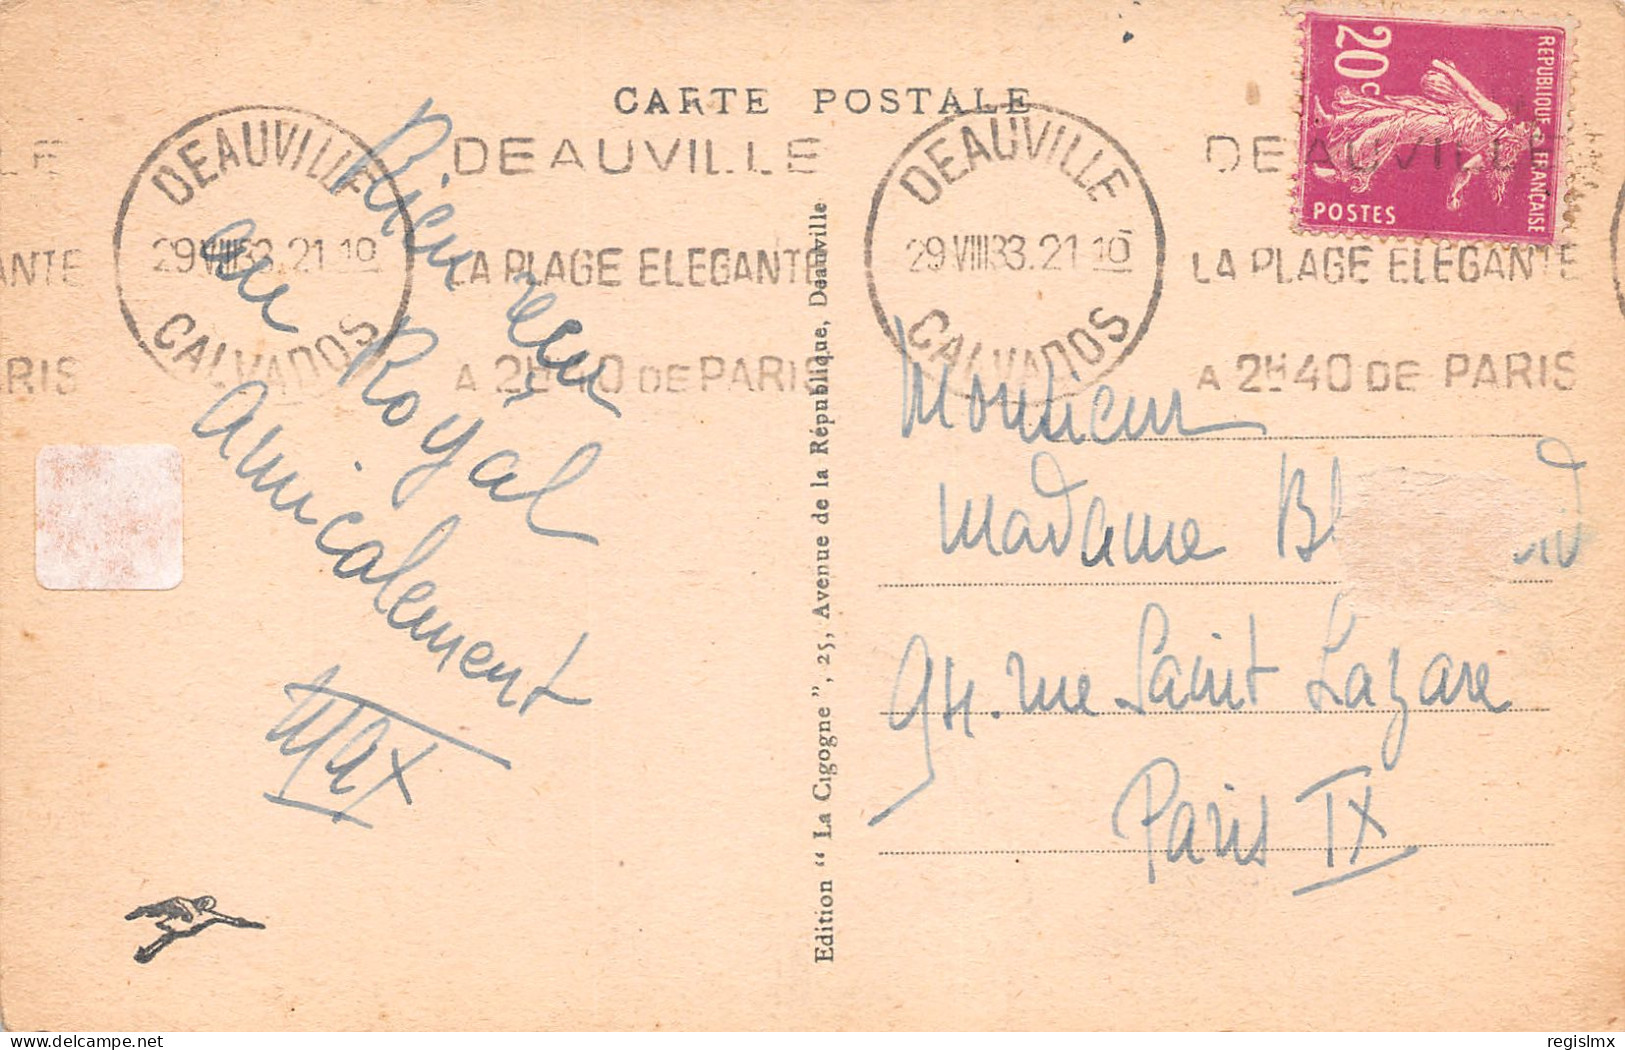 CARTE POSTALE
LE
ANTE
ARIS
DEAUVILLE
29 VIII 33.21 10
CALVADOS
DEAUVILLE
LA PLAGE ELEGANTE
A 2H40 DE PARIS
DEAUVILLE
29 VIII 33.21 10
CALVADOS
DEAUVILLE
LA PLAGE ELEGANTE
A 2H40 DE PARIS
20c
REPUBLIQUE FRANÇAISE
POSTES
Bien reçu
au Royal
amicalement
Max
Edition " La Cigogne ", 25, Avenue de la République, Deauville
Monsieur
Madame Bl
94. rue Saint Lazare
Paris IX
regislmx